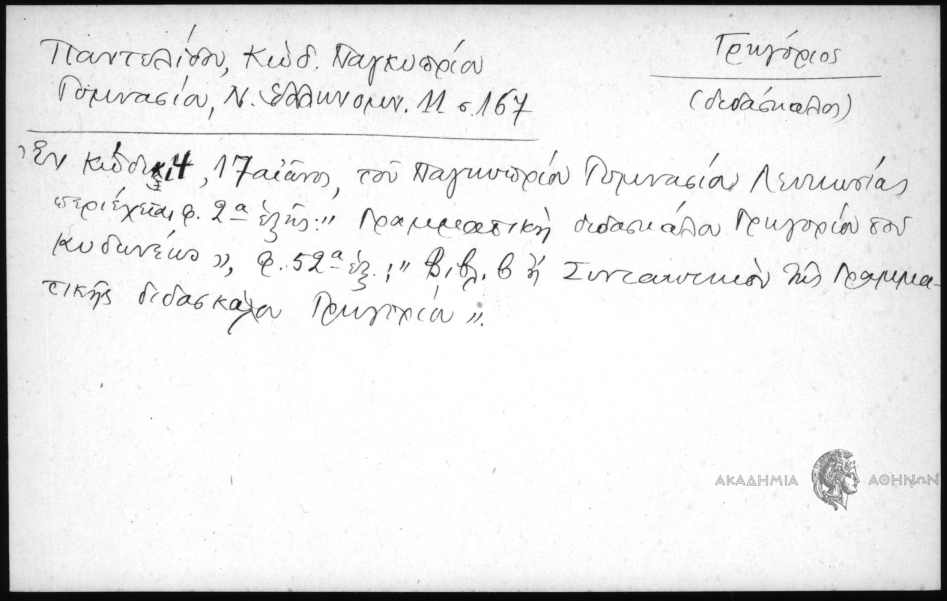 Παντελίδου, Κώδ. Παγκυπρίου
Γυμνασίου, Ν. Ελληνομν. 11 σ. 167
Γρηγόριος
(διδάσκαλος)
Ἐν κώδικι 4, 17 αἰῶνος, τοῦ Παγκυπρίου Γυμνασίου Λευκωσίας
περιέχεται φ. 2α ἑξῆς: " Γραμματικὴ διδασκάλου Γρηγορίου τοῦ
Κυδωνέως ", φ. 52α ἑξ.: " Βιβλ. β ἢ Συντακτικὸν τῆς Γραμμα-
τικῆς διδασκάλου Γρηγορίου ".
ΑΚΑΔΗΜΙΑ ΑΘΗΝΩΝ